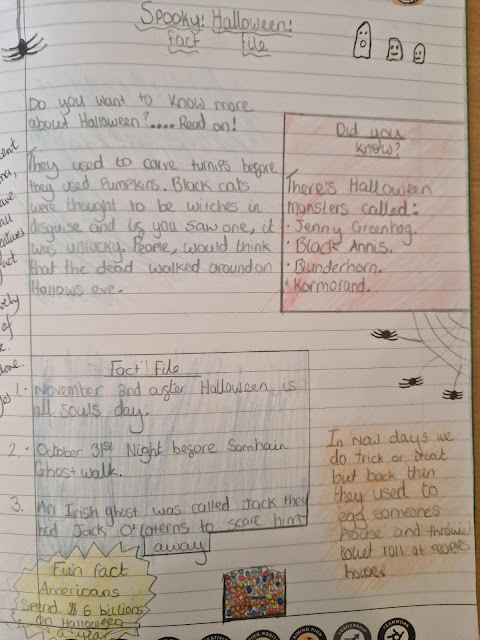 Spooky! Halloween!
Fact File
Do you want to know more
about Halloween?.... Read on!
They used to carve turnips before
they used Pumpkins. Black cats
were thought to be witches in
disguise and if you saw one, it
was unlucky. People, would think
that the dead walked around on
Hallows eve.
Did you
know?
There's Halloween
monsters called:
• Jenny Greenbag.
• Black Annis.
• Blunderhorn.
• Kormorand.
Fact File
1. • November 2nd after Halloween is
all souls day.
2. • October 31st Night before Samhain
Ghost walk.
3. An Irish ghost was called Jack they
had Jack O'laterns to scare him
away
In now days we
do trick or treat
but back then
they used to
egg someones
house and throw
toilet roll at
house
Fun fact
Americans
Spend $6 billions
on Halloween
a year
LEADERSHIP
TEAMWORK